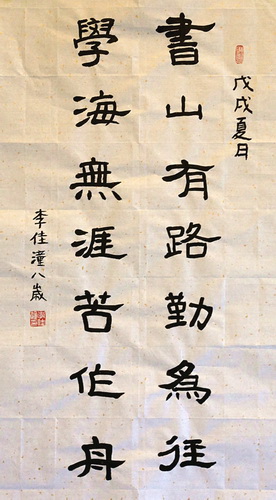 戊戌夏日
書山有路勤為径
學海無涯苦作舟
李佳潼八歲